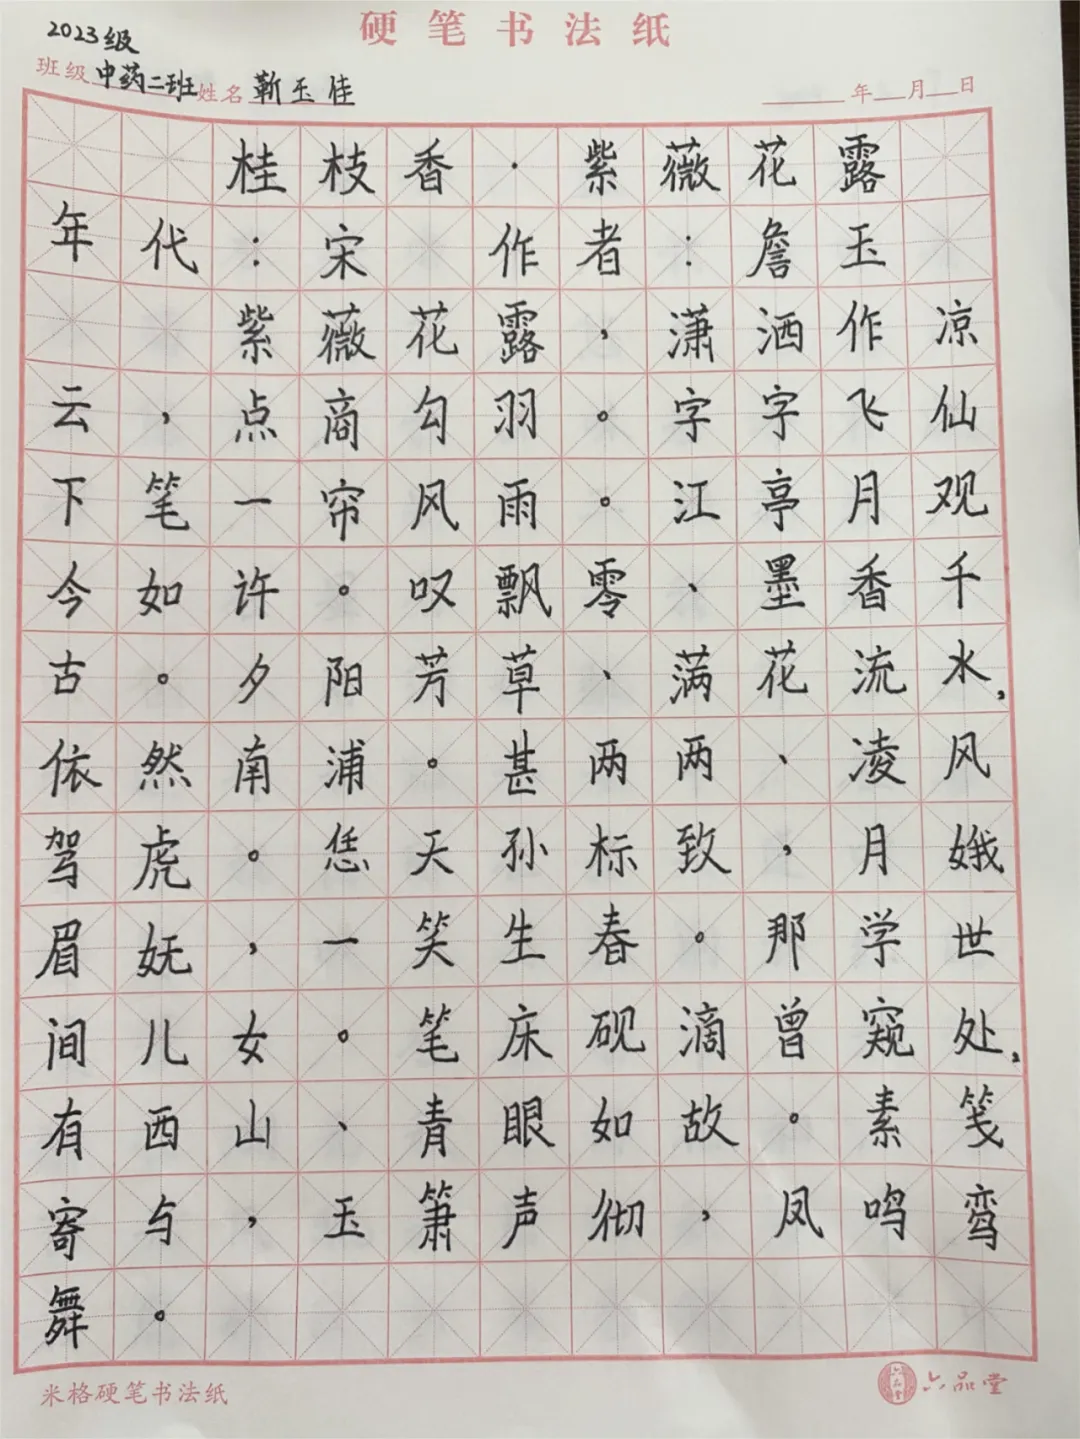 硬笔书法纸
2023级
班级 中药二班 姓名 靳玉佳 年 月 日
桂枝香·紫薇花露
年代：宋 作者：詹玉
紫薇花露，潇洒作凉
云，点商勾羽。字字飞仙
下笔一帘风雨。江亭月观
今如许。叹飘零、墨香千
古。夕阳芳草、满花流水，
依然南浦。甚两两、凌风
驾虎。恁天孙标致，月娥
眉妩，一笑生春。那学世
间儿女。笔床砚滴曾窥处，
有西山、青眼如故。素笺
寄与，玉箫声彻，凤鸣鸾
舞。
米格硬笔书法纸 六品堂